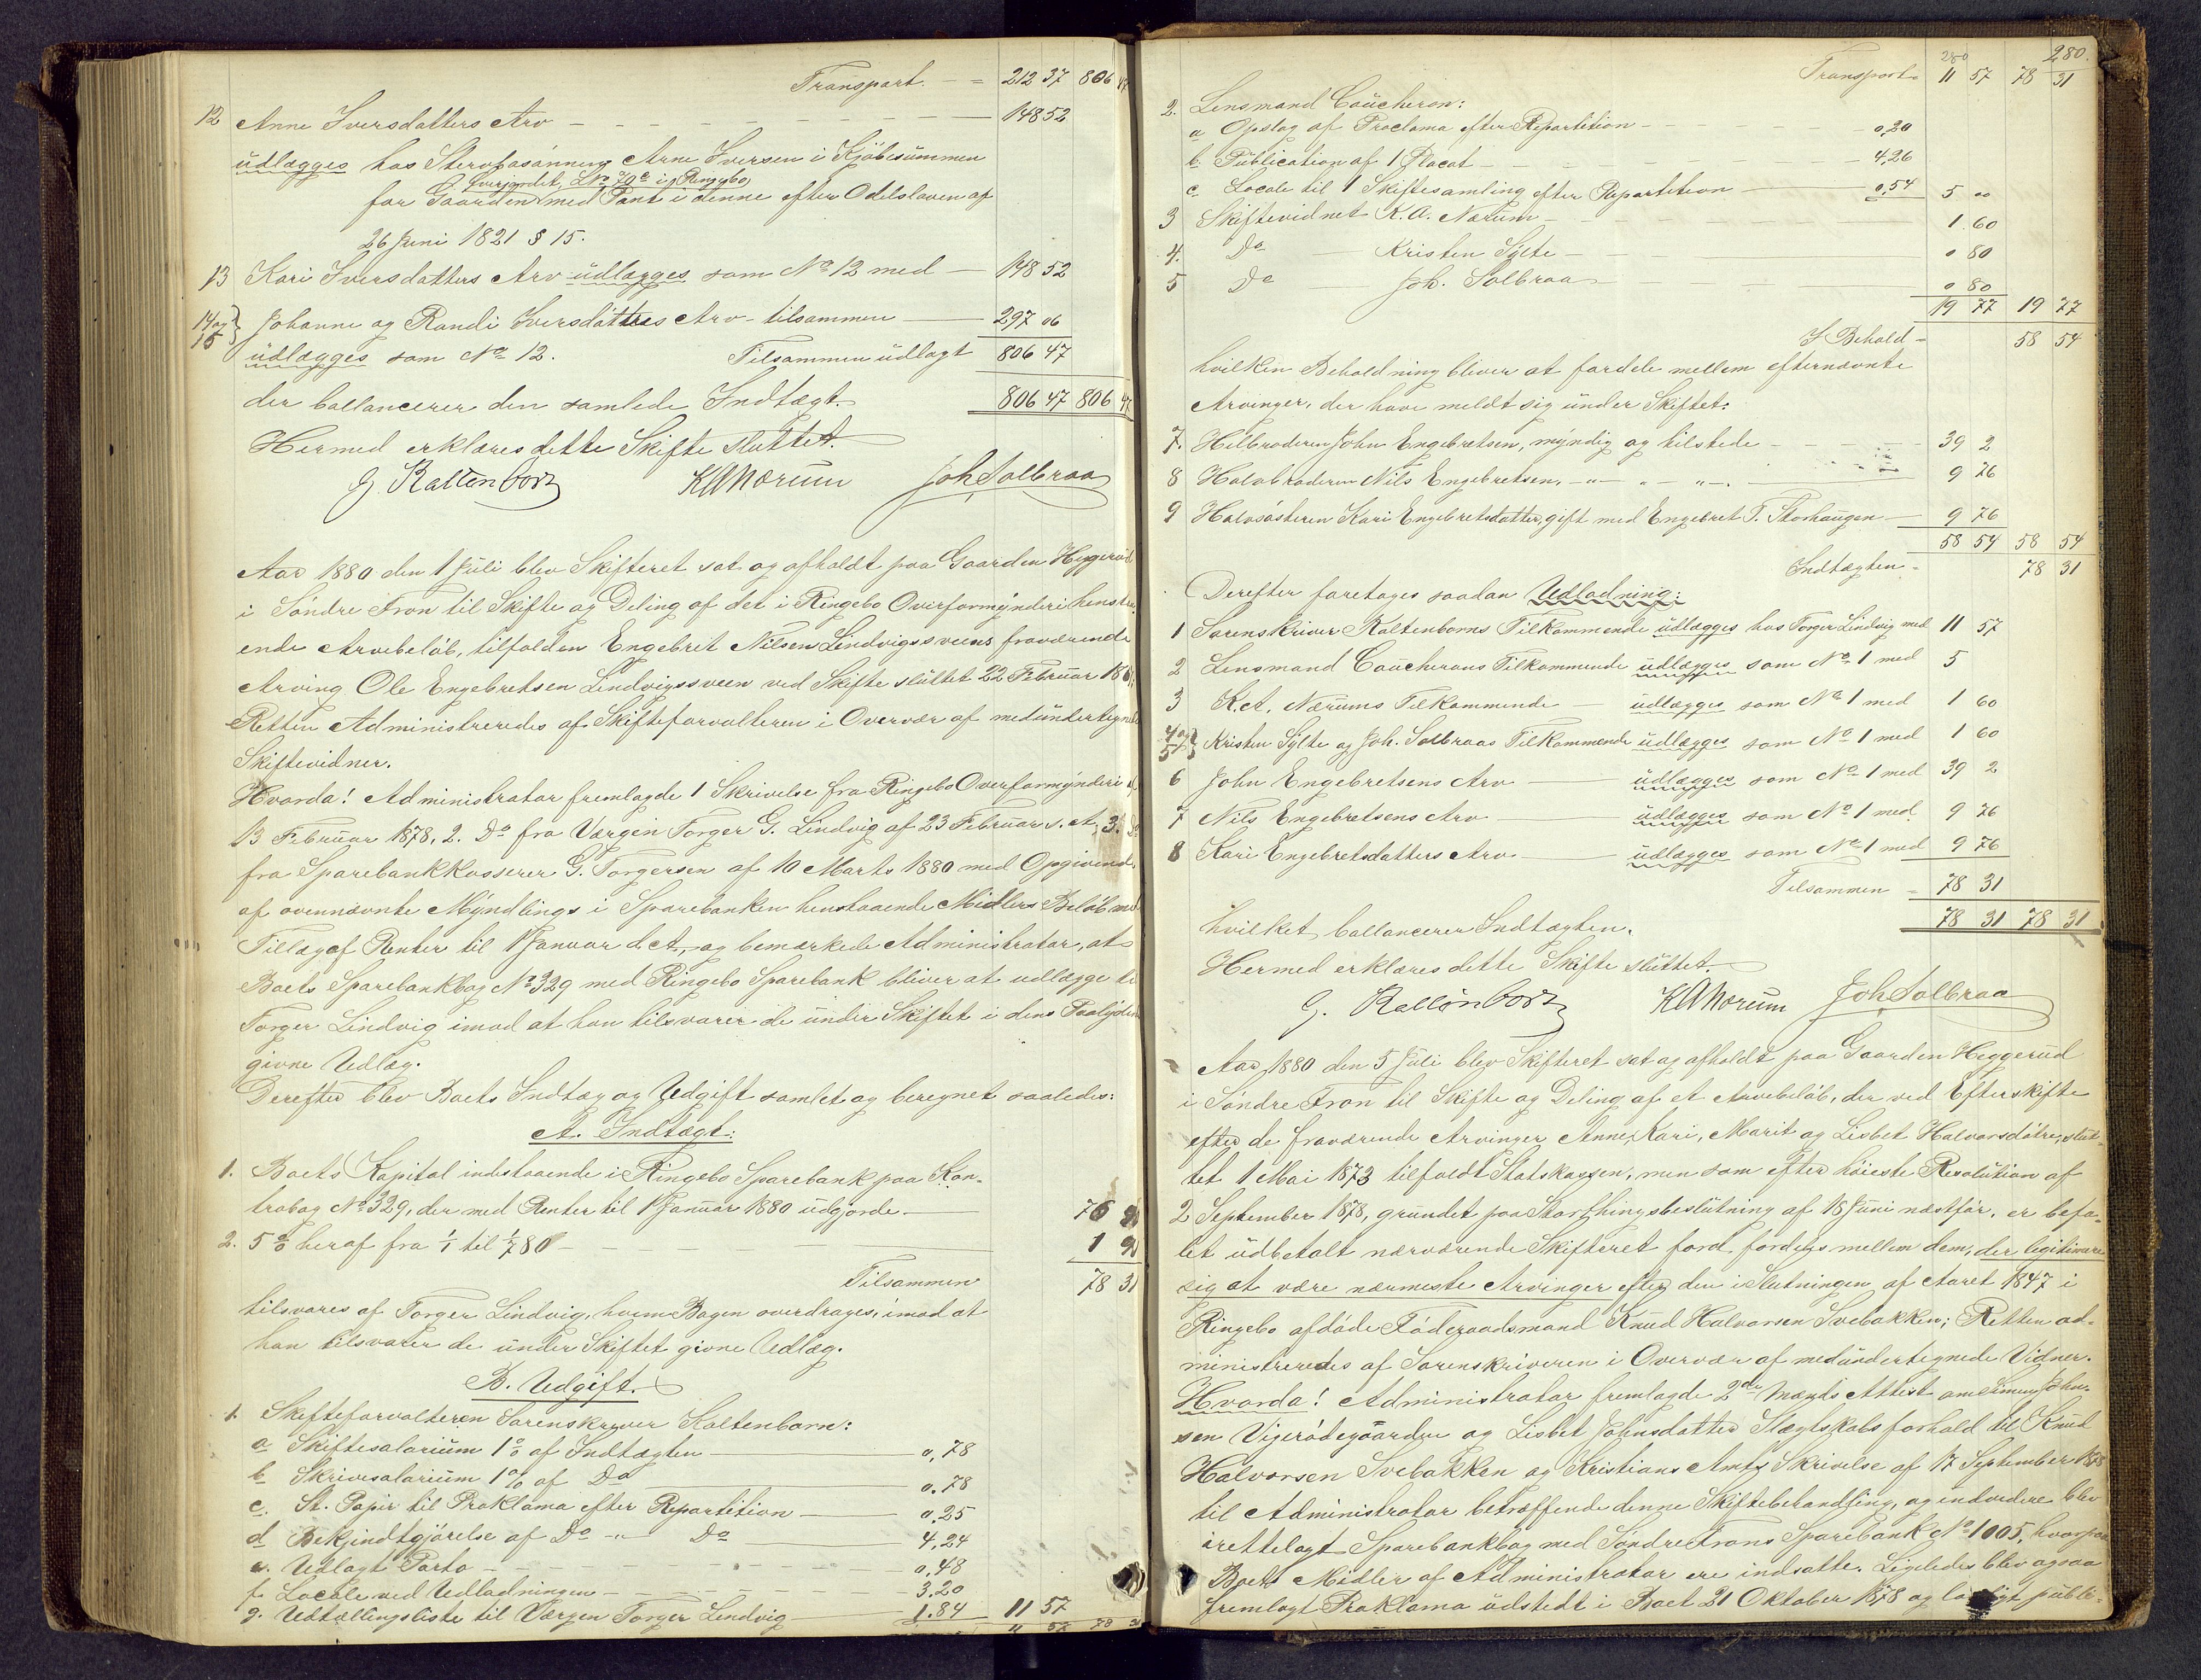 Transport. - = 212 37 806 47
12 Anne Iversdatters Arv - - - - - - - - 148 52
udlægges hos Stervbosønnen Arne Iversen i Kjøbesummen
Sverjordet, LNo 79c i Ringebo
for Gaarden med Pant i denne efter Odelsloven af
26 Juni 1821 § 15.
13 Kari Iversdatters Arv udlægges som No 12 med - 148 52
14 og 15 Johanne og Randi Iversdøttres Arv - tilsammen - 297 06
udlægges som No 12. Tilsammen udlagt 806 47
der ballancerer den samlede Indtægt. 806 47 806 47
Hermed erklæres dette Skifte sluttet.
G. Kaltenborn KANærum Joh Solbraa
Aar 1880 den 1 Juli blev Skifteret sat og afholdt paa Gaarden Heggerud
i Søndre Fron til Skifte og Deling af det i Ringebo Overformynderi henstaa-
ende Arvebeløb, tilfalden Engebret Nilsen Lindvigssveens fraværende
Arving Ole Engebretsen Lindvigssveen ved Skifte sluttet 22 Februar
Retten Administreredes af Skifteforvalteren i Overvær af medundertegnede
Skiftevidner.
Hvorda! Administrator fremlagde 1 Skrivelse fra Ringebo Overformynderi af
13 Februar 1878, 2. Do fra Værgen Torger G. Lindvig af 23 Februar s. A., 3. Do
fra Sparebankkasserer G. Torgersen af 10 Marts 1880 med Opgivende
af ovennævnte Myndlings i Sparebanken henstaaende Midlers Beløb med
Tillæg af Renter til 1 Januar d. A., og bemærkede Administrator, at
Boets Sparebankbog No 329 med Ringebo Sparebank bliver at udlægge til
Torger Lindvig imod at han tilsvarer de under Skiftet i dens Paalydende
givne Udlæg.
Derefter blev Boets Indtæg og Udgift samlet og beregnet saaledes:
A. Indtægt:
1. Boets Kapital indestaaende i Ringebo Sparebank paa Kon-
trabog No 329, der med Renter til 1 Januar 1880 udgjorde. - 76
2. 5 % heraf fra 1/1 til 1/7 80 - - - 1
Tilsammen 78 31
tilsvares af Torger Lindvig, hvem Bogen overdrages, imod at
han tilsvarer de under Skiftet givne Udlæg.
B. Udgift.
1. Skifteforvalteren Sorenskriver Kaltenborn:
a Skiftesalarium 1 % af Indtægten - 0,78
b Skrivesalarium 1 % af Do - 0.78
c. St. Papir til Proklama efter Repartition - 0,25
d Bekjendtgjørelse af Do -"- Do - 4,24
e. Udlagt Porto - - - 0,48
f. Locale ved Udlodningen - - - 3.20
g. Udtællingsliste til Værgen Torger Lindvig - 1.84 11 57
11 57 78 31
280 280.
Transport = 11 57 78 31
2. Lensmand Coucheron:
a Opslag af Proclama efter Repartition - - - 0,20
b. Publication af 1 Placat - - - 4,26
c. Locale til 1 Skiftesamling efter Repartition - 0,54 5 00
3 Skiftevidnet K. A. Nærum - - 1 60
4. Do - Kristen Sylte - - 0 80
5 Do - Joh. Solbraa - - 0 80
19 77 19 77
I Behold = 58 54
hvilken Beholdning bliver at fordele mellem efternævnte
Arvinger, der have meldt sig under Skiftet:
7. Helbroderen John Engebretsen, myndig og tilstede - - - 39 2
8 Halvbroderen Nils Engebretsen, -"- " - "-. - 9 76
9 Halvsøsteren Kari Engebretsdatter, gift med Engebret T. Storhaugen - 9 76
58 54 58 54
Indtægten = 78 31
Derefter foretoges saadan Udlodning:
1 Sorenskriver Kaltenborns Tilkommende udlægges hos Torger Lindvig med 11 57
2 Lensmand Coucherons Tilkommende udlægges som No 1 med 5
3 K. A. Nærums Tilkommende - udlægges som No 1 med 1 60
4 og 5 Kristen Sylte og Joh. Solbraas Tilkommende udlægges som No 1 med 1 60
6 John Engebretsens Arv - udlægges som No 1 med 39 2
7 Nils Engebretsens Arv - udlægges som No 1 med 9 76
8 Kari Engebretsdatters Arv - udlægges som No 1 med 9 76
Tilsammen = 78 31
hvilket ballancerer Indtægten. 78 31 78 31
Hermed erklæres dette Skifte sluttet.
G. Kaltenborn KANærum Joh Solbraa
Aar 1880 den 5 Juli blev Skifteret sat og afholdt paa Gaarden Heggerud
i Søndre Fron til Skifte og Deling af et Arvebeløb, der ved Efterskifte
efter de fraværende Arvinger Anne, Kari, Marit og Lisbet Halvorsdøtre, slut-
tet 1 Mai 1873 tilfaldt Statskassen, men som efter høieste Resolution af
2 September 1878, grundet paa Storthingsbeslutning af 18 Juni næstfør, er befa-
let udbetalt nærværende Skifteret for at fordeles mellem dem, der legitimere
sig at være nærmeste Arvinger efter den i Slutningen af Aaret 1847 i
Ringebo afdøde Føderaadsmand Knud Halvorsen Svebakken; Retten ad-
ministreredes af Sorenskriveren i Overvær af medundertegnede Vidner.
Hvorda! Administrator fremlagde 2de Mænds Attest om Simen John-
sen Vigerødegaarden og Lisbet Johnsdatter Slægtskabsforhold til Knud
Halvorsen Svebakken og Kristians Amts Skrivelse af 17 September 1878
til Administrator betræffende denne Skiftebehandling, og endvidere blev
irettelagt Sparebankbog med Søndre Frons Sparebank No 1005, hvorpaa
Boets Midler af Administrator ere indsatte. Ligeledes blev ogsaa
fremlagt Proklama udstedt i Boet 21 Oktober 1878 og lovligt publi-